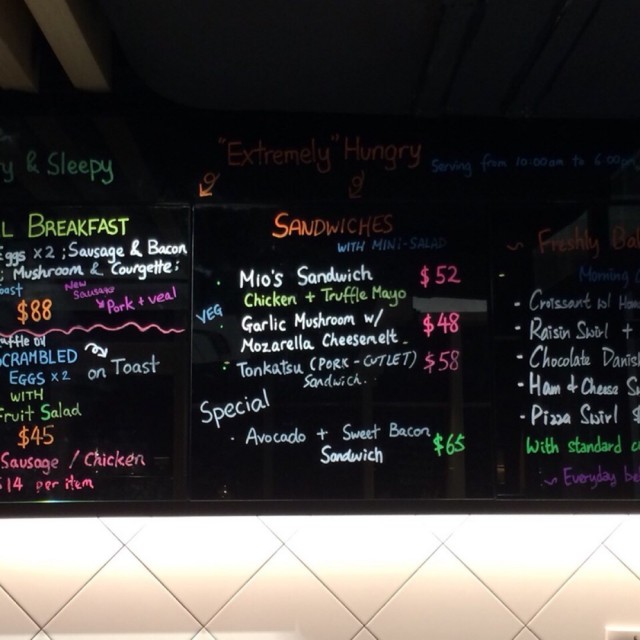 y & Sleepy
"Extremely" Hungry
Serving from 10:00am to 6:00
L BREAKFAST
Eggs x2 ; Sausage & Bacon
; Mushroom & Courgette ;
oast
New
Sausage
Pork + veal
$88
uffle oil
SCRAMBLED
EGGS x2
on Toast
WITH
Fruit Salad
$45
Sausage / Chicken
$14 per item
SANDWICHES
WITH MINI-SALAD
Mio's Sandwich $52
Chicken + Truffle Mayo
VEG
Garlic Mushroom w/ $48
Mozarella Cheesemelt.
Tonkatsu (PORK-CUTLET) $58
Sandwich.
Special
Avocado + Sweet Bacon $65
Sandwich
~ Freshly Ba
Morning
- Croissant w/ Ha
- Raisin Swirl +
- Chocolate Danis
- Ham & Cheese Sw
- Pizza Swirl $
With standard c
~ Everyday be